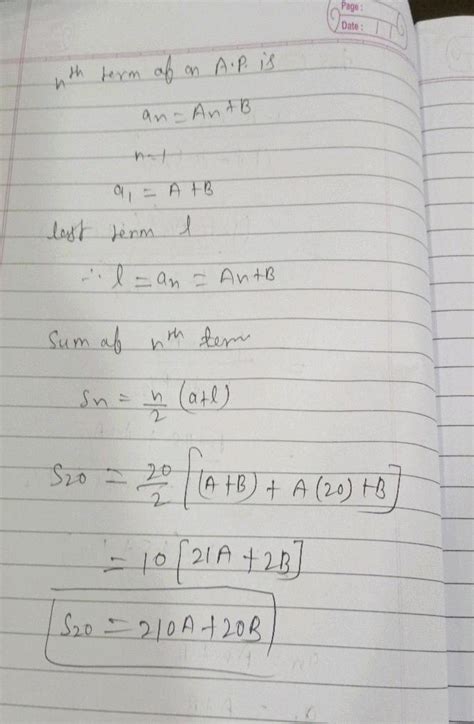 Page:
Date:
nth term of an A.P. is
an = An + B
n=1
a1 = A + B
last term l
∴ l = an = An+B
Sum of nth term
Sn = n/2 (a+l)
S20 = 20/2 [(A+B) + A(20) + B]
= 10 [21A + 2B]
S20 = 210A + 20B